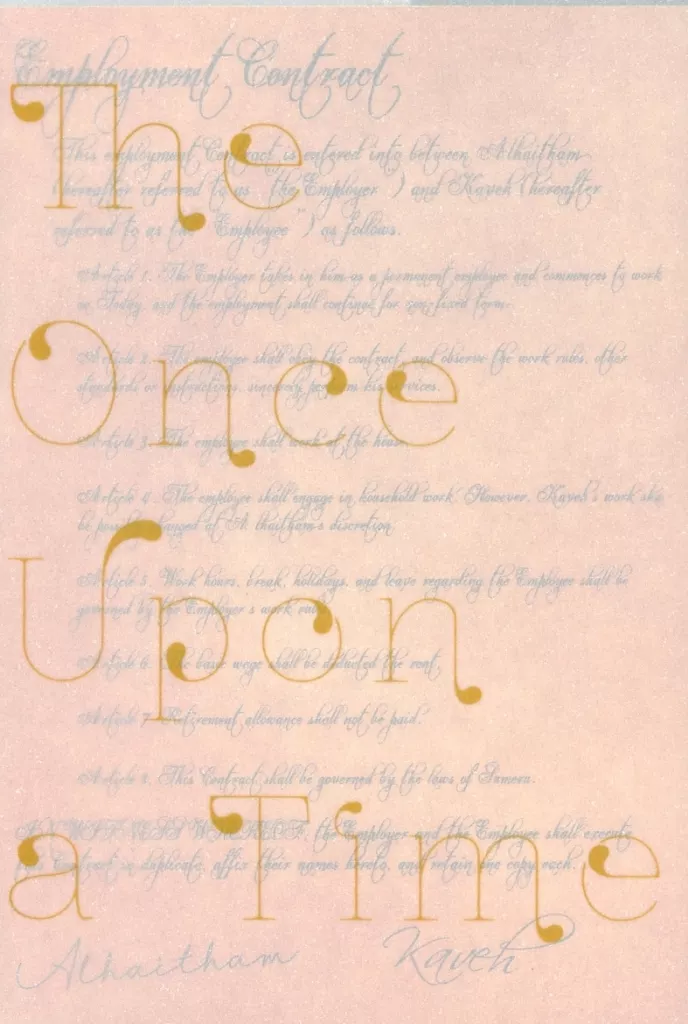 Employment Contract
The
This employment Contract is entered into between Alhaitham
(hereafter referred to as "the Employer") and Kaveh (hereafter
referred to as the "Employee") as follows.
Article 1. The Employer takes in him as a permanent employee and commences to work
on Today, and the employment shall continue for non-fixed term.
Once
Article 2. The employee shall obey the contract, and observe the work rules, other
standards or instructions, sincerely perform his services.
Article 3. The employee shall work at the house.
Article 4. The employee shall engage in household work. However, Kaveh's work
be possibly changed at Alhaitham's discretion.
Upon
Article 5. Work hours, break, holidays, and leave regarding the Employee shall be
governed by the Employer's work rules.
Article 6. The basic wage shall be deducted the rent.
Article 7. Retirement allowance shall not be paid.
Article 8. This Contract shall be governed by the laws of Sumeru.
a Time
IN WITNESS WHEREOF, the Employer and the Employee shall execute
this Contract in duplicate, affix their names hereto, and retain one copy each.
Alhaitham Kaveh